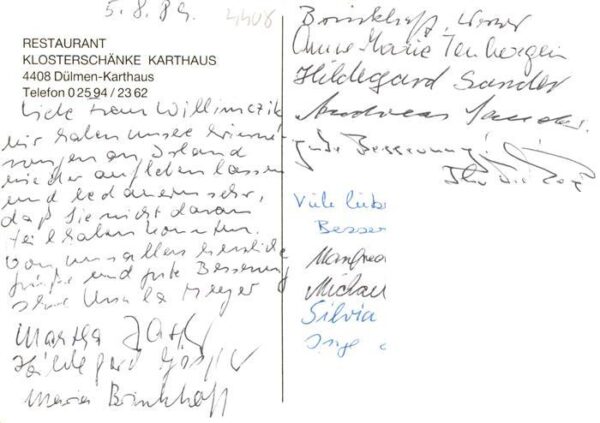 5.8.89.
4408
RESTAURANT
KLOSTERSCHÄNKE KARTHAUS
4408 Dülmen-Karthaus
Telefon 0 25 94 / 23 62
Liebe Frau Willimczik
wir haben unsere Erinne-
rungen an Island
wieder aufleben lassen
und bedauern sehr,
daß Sie nicht daran
teilhaben konnten.
Von uns allen herzliche
Grüße und gute Besserung
Ihre Ursula Meyer
Martha
Hildegard
Maria Brinkhoff
Brinkhoff, Werner
Anne Marie Tenbergen
Hildegard Sander
Andreas Sander.
gute Besserung!
Ihr
Viele liebe
Besser
Manfred
Michae
Silvia
Inge